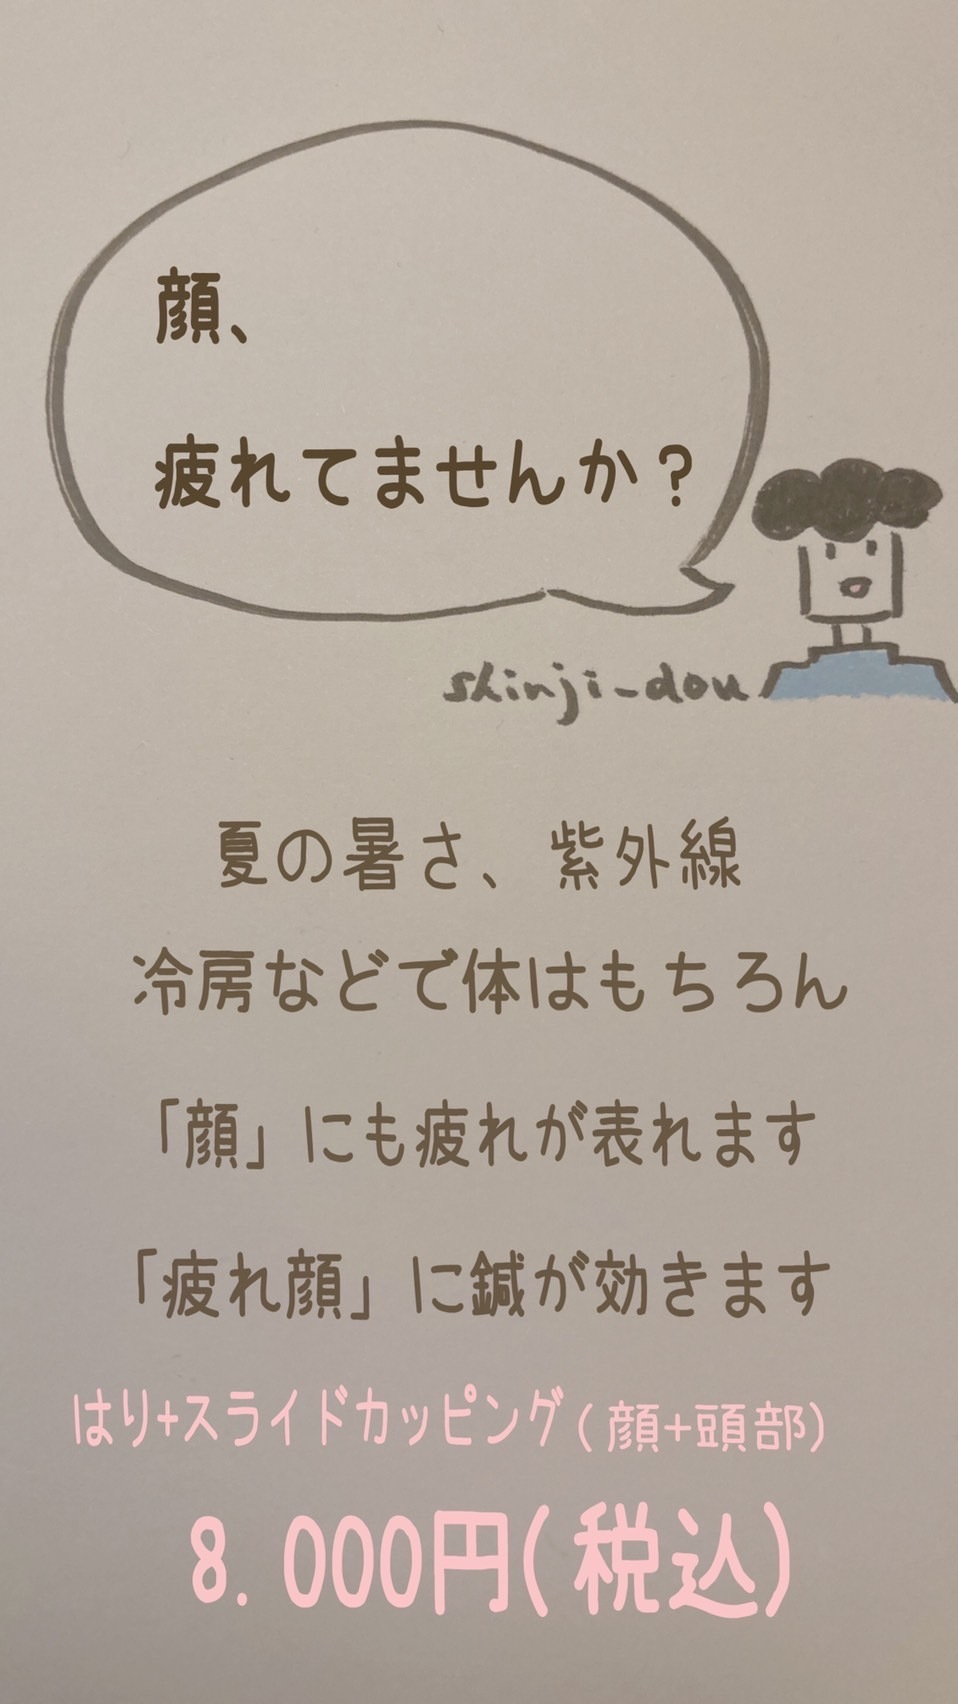 顔、
疲れてませんか？
shinji-dou
夏の暑さ、紫外線
冷房などで体はもちろん
「顔」にも疲れが表れます
「疲れ顔」に鍼が効きます
はり+スライドカッピング(顔+頭部)
8.000円(税込)